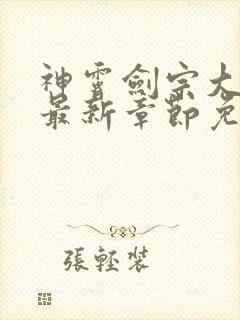 神霄劍宗大
最新章節免
張輕裝